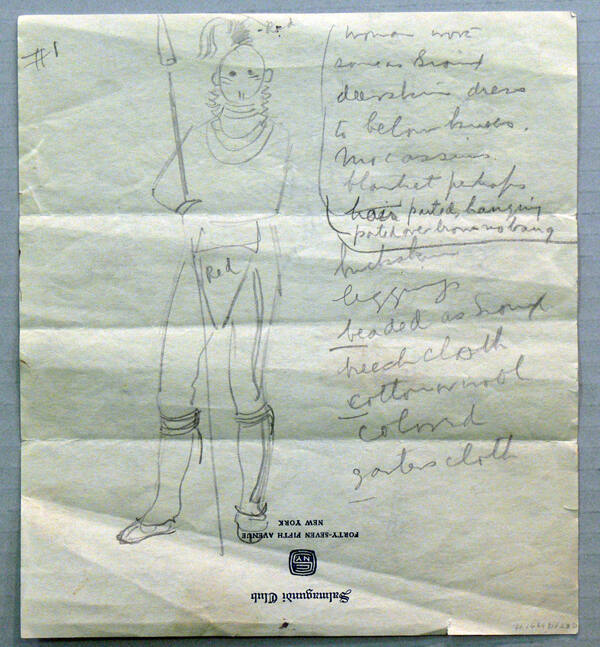 #1
-Red
woman wore
same as Sioux
deerskin dress
to below knees.
Mocassins.
blanket perhaps
hair parted, hanging
parted over brow no bang
buckskin
leggings
beaded as Sioux
breech cloth
cotton or wool
colored
garters cloth
Red
FORTY-SEVEN FIFTH AVENUE
NEW YORK
Salmagundi Club